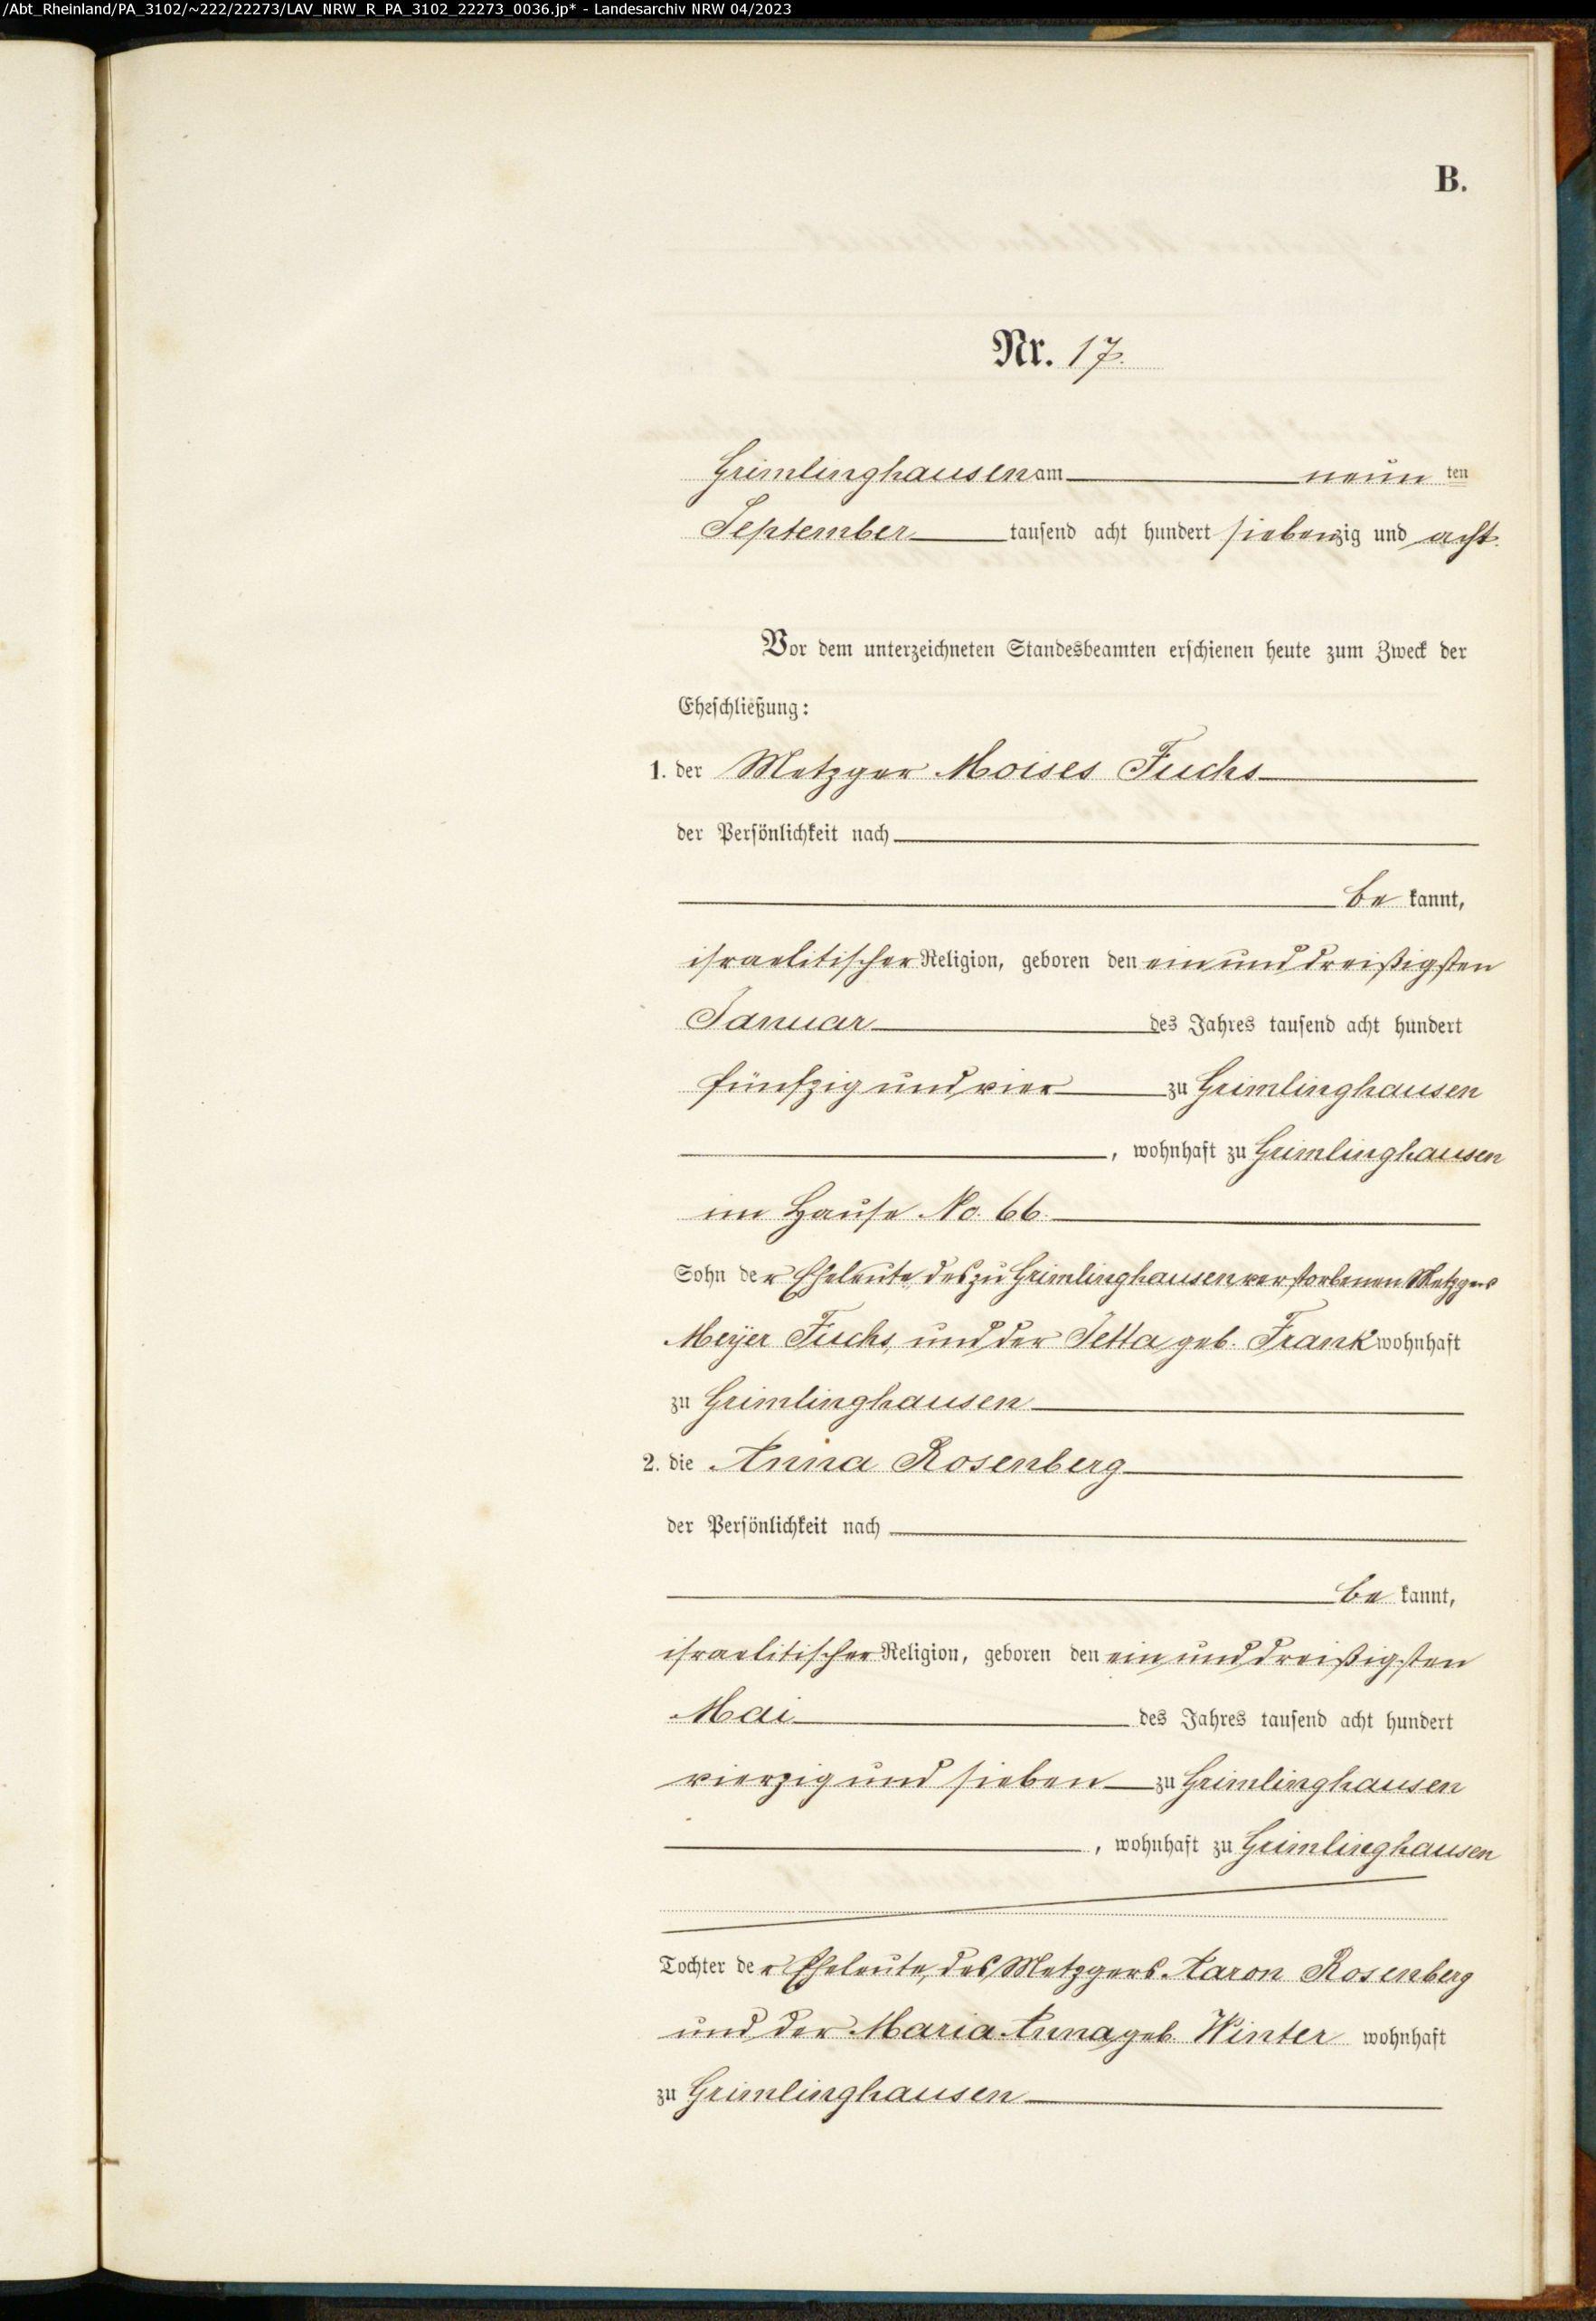 /Abt_Rheinland/PA_3102/~222/22273/LAV_NRW_R_PA_3102_22273_0036.jp* - Landesarchiv NRW 04/2023
B.
Nr. 17.
Grimlinghausen am neun ten
September tausend acht hundert siebenzig und acht.
Vor dem unterzeichneten Standesbeamten erschienen heute zum Zweck der
Eheschließung:
1. der Metzger Moises Fuchs
der Persönlichkeit nach
be kannt,
israelitischer Religion, geboren den ein und dreißigsten
Januar des Jahres tausend acht hundert
fünfzig und vier zu Grimlinghausen
, wohnhaft zu Grimlinghausen
im Hause No. 66.
Sohn der Eheleute, des zu Grimlinghausen verstorbenen Metzgers
Meyer Fuchs, und der Jetta geb. Frank wohnhaft
zu Grimlinghausen
2. die Anna Rosenberg
der Persönlichkeit nach
be kannt,
israelitischer Religion, geboren den ein und dreißigsten
Mai des Jahres tausend acht hundert
vierzig und sieben zu Grimlinghausen
, wohnhaft zu Grimlinghausen
Tochter der Eheleute, des Metzgers Aaron Rosenberg
und der Maria Anna geb. Winter wohnhaft
zu Grimlinghausen